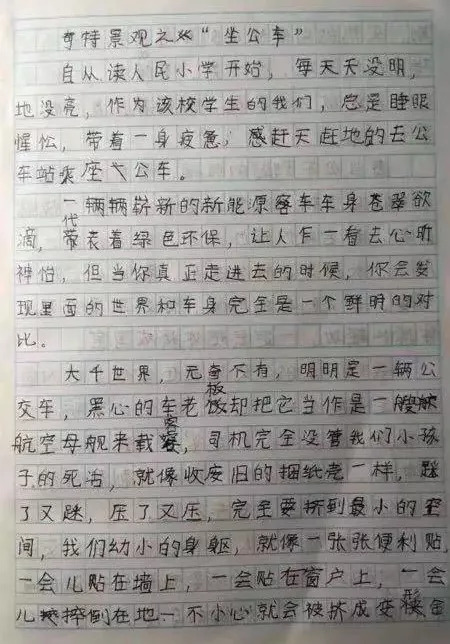 奇特景观之“坐公车”
自从读人民小学开始，每天天没明，
地没亮，作为该校学生的我们，总是睡眼
惺忪，带着一身疲惫，感赶天赶地的去公
车站乘座公车。
一辆辆崭新的新能原客车车身苍翠欲
滴，代表着绿色环保，让人乍一看去心旷
神怡，但当你真正走进去的时候，你会发
现里面的世界和车身完全是一个鲜明的对
比。
大千世界，无奇不有，明明是一辆公
交车，黑心的车老板却把它当作是一艘
航空母舰来载客，司机完全没管我们小孩
子的死活，就像收废旧的捆纸壳一样，
了又，压了又压，完全要挤到最小的空
间，我们幼小的身躯，就像一张张便利贴，
一会儿贴在墙上，一会贴在窗户上，一会
儿摔倒在地一不小心就会被挤成变形金